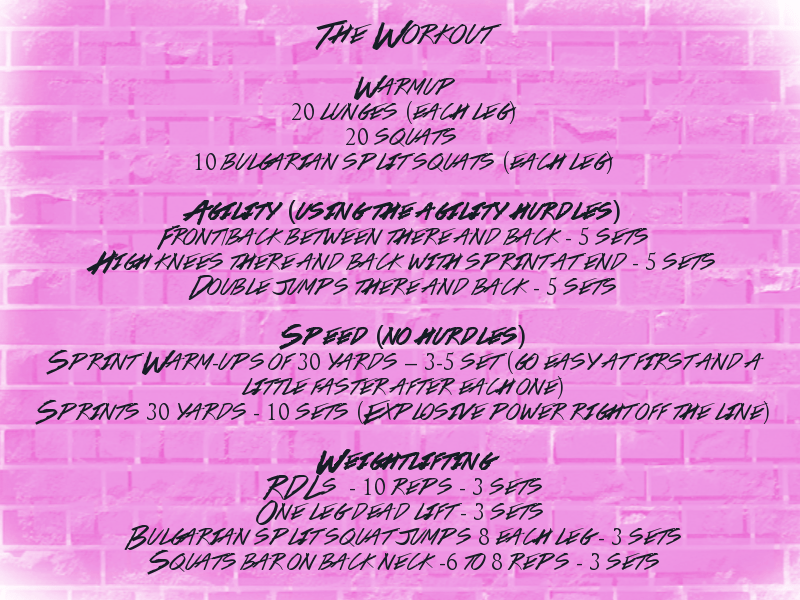 The Workout
Warmup
20 lunges (each leg)
20 squats
10 Bulgarian split squats (each leg)
Agility (using the agility hurdles)
Front/back between there and back - 5 sets
High knees there and back with sprint at end - 5 sets
Double jumps there and back - 5 sets
Speed (no hurdles)
Sprint Warm-ups of 30 yards – 3-5 set (go easy at first and a
little faster after each one)
Sprints 30 yards - 10 sets (Explosive power right off the line)
Weightlifting
RDLs - 10 reps - 3 sets
One leg dead lift - 3 sets
Bulgarian split squat jumps 8 each leg - 3 sets
Squats bar on back neck -6 to 8 reps - 3 sets